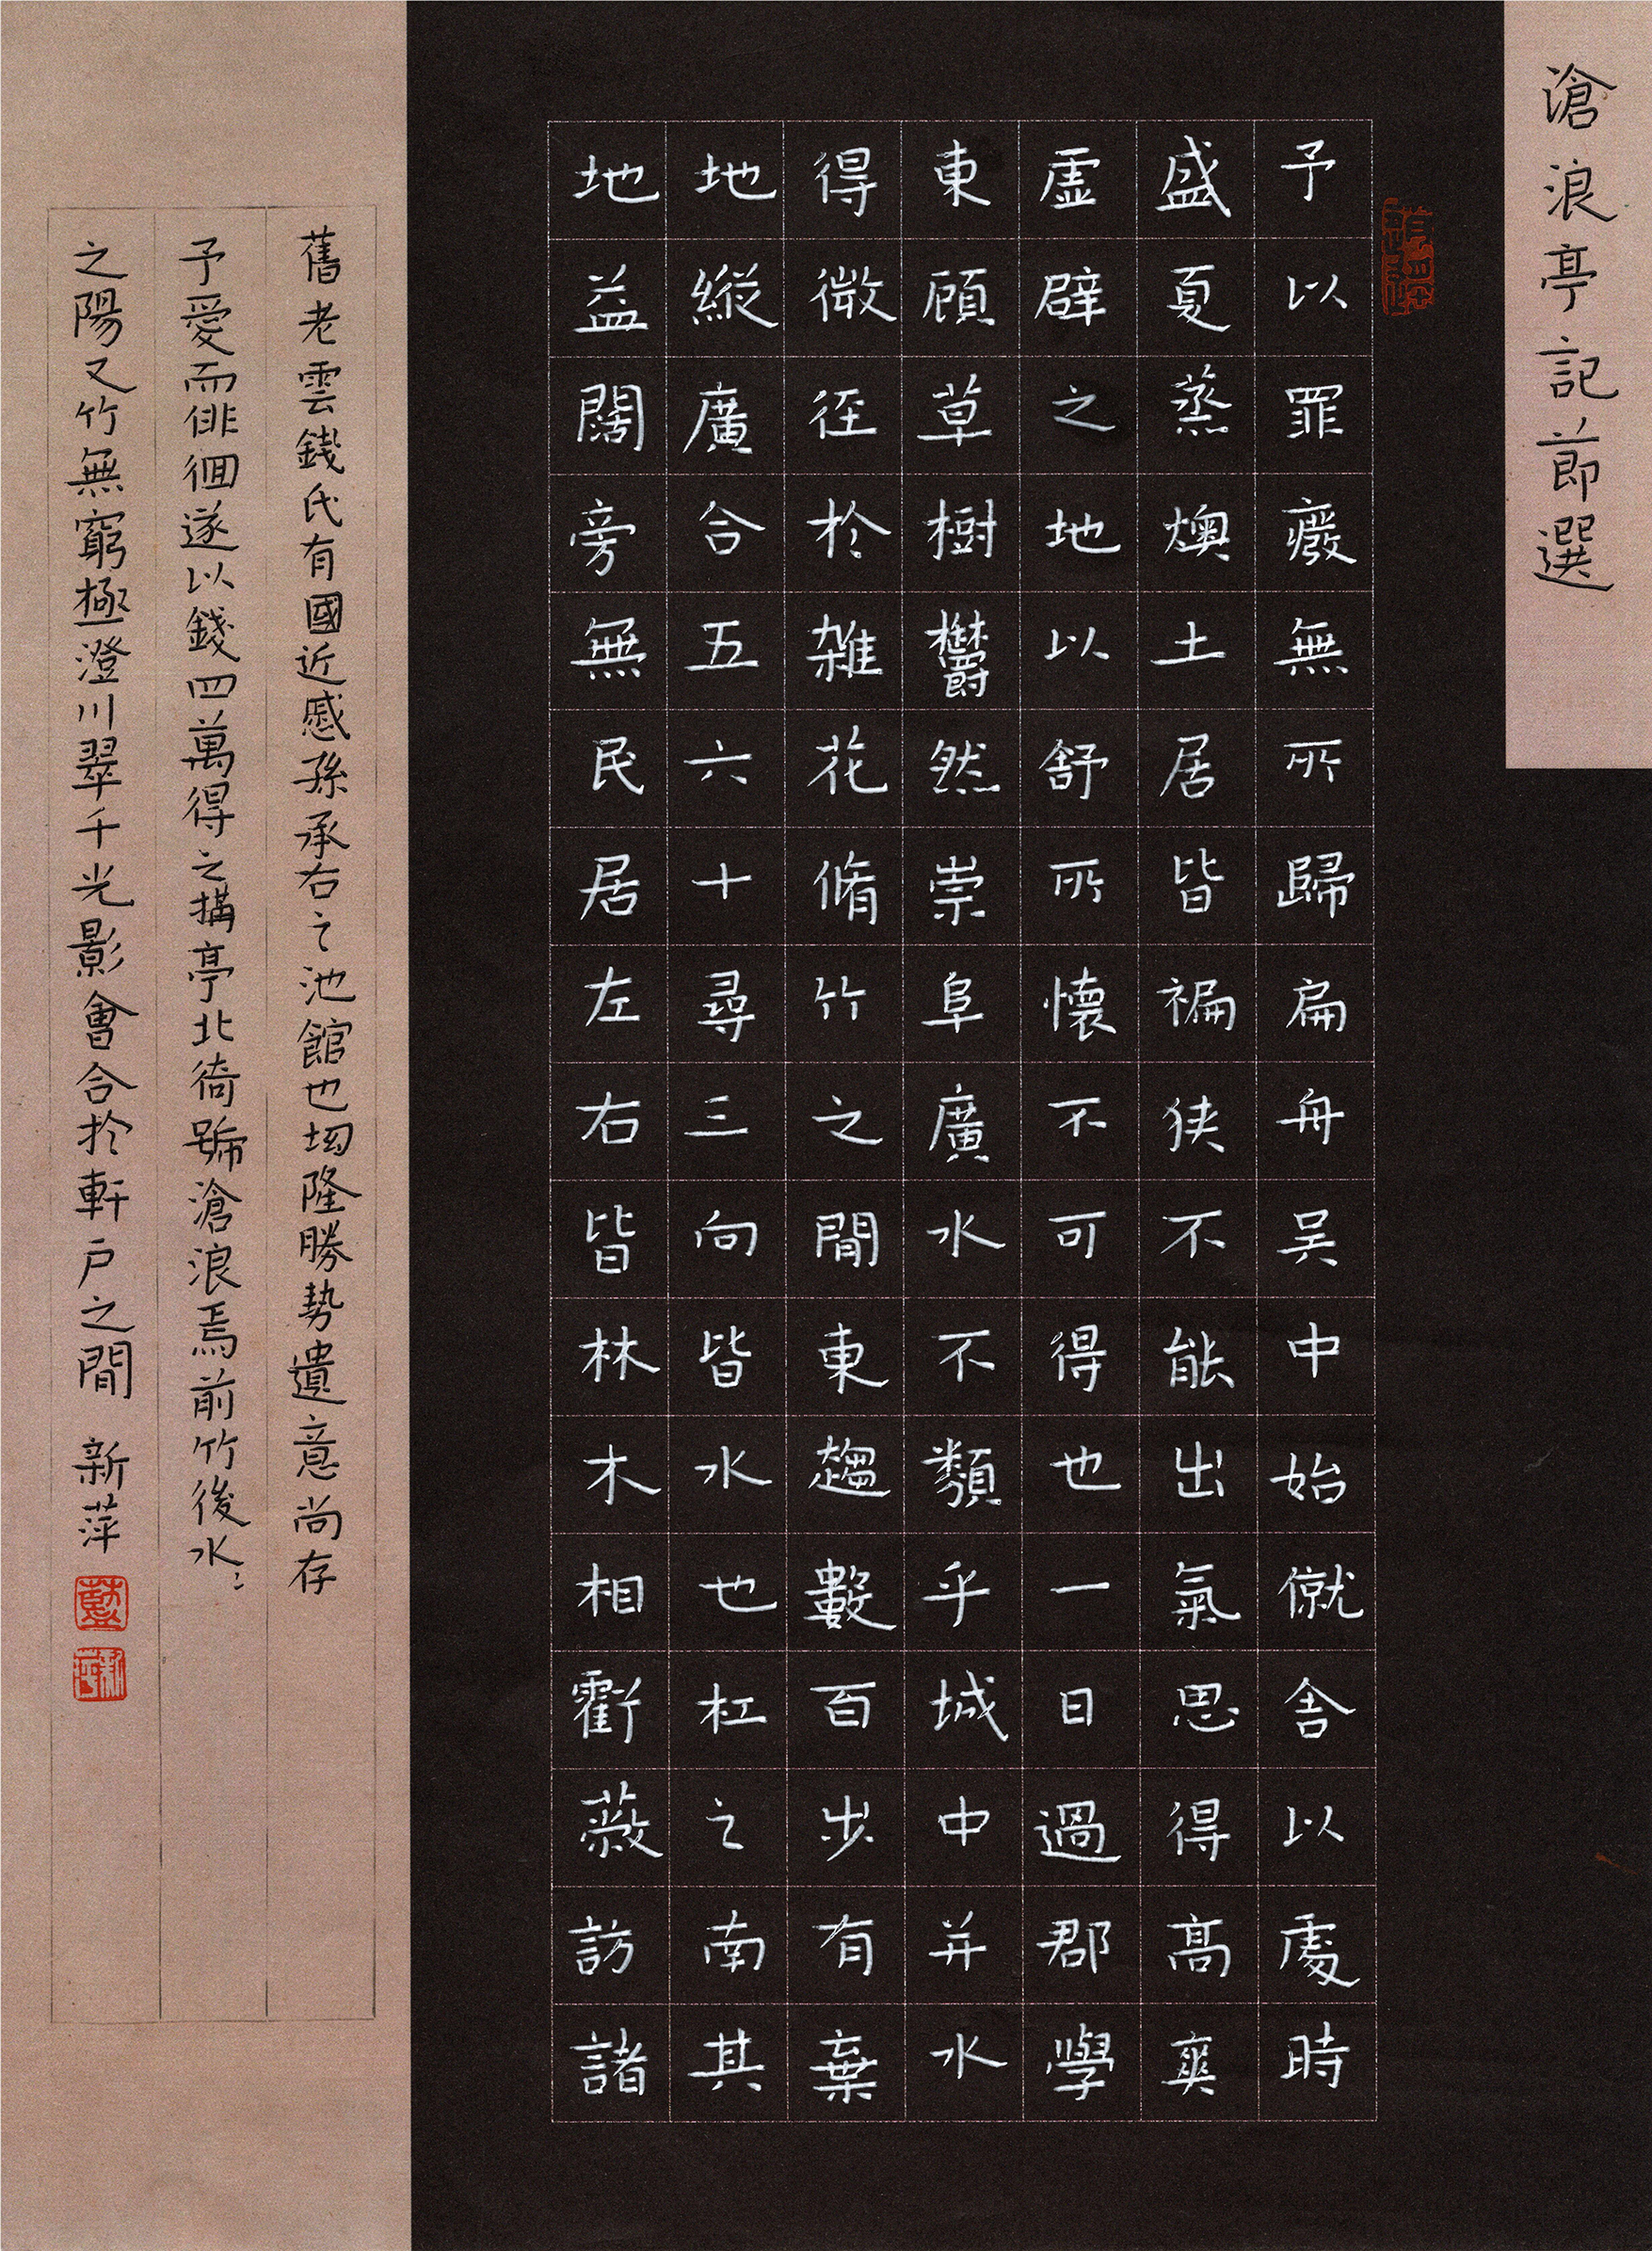 滄浪亭記節選
予以罪廢無所歸扁舟吳中始僦舍以處時
盛夏蒸燠土居皆褊狹不能出氣思得高爽
虛辟之地以舒所懷不可得也一日過郡學
東顧草樹鬱然崇阜廣水不類乎城中並水
得微徑於雜花脩竹之間東趨數百步有棄
地縱廣合五六十尋三向皆水也杠之南其
地益闊旁無民居左右皆林木相虧蔽訪諸
舊老雲錢氏有國近戚孫承右之池館也坳隆勝勢遺意尚存
予愛而徘徊遂以錢四萬得之搆亭北碕號滄浪焉前竹後水〻
之陽又竹無窮極澄川翠千光影會合於軒戶之間 新萍
藍
新萍